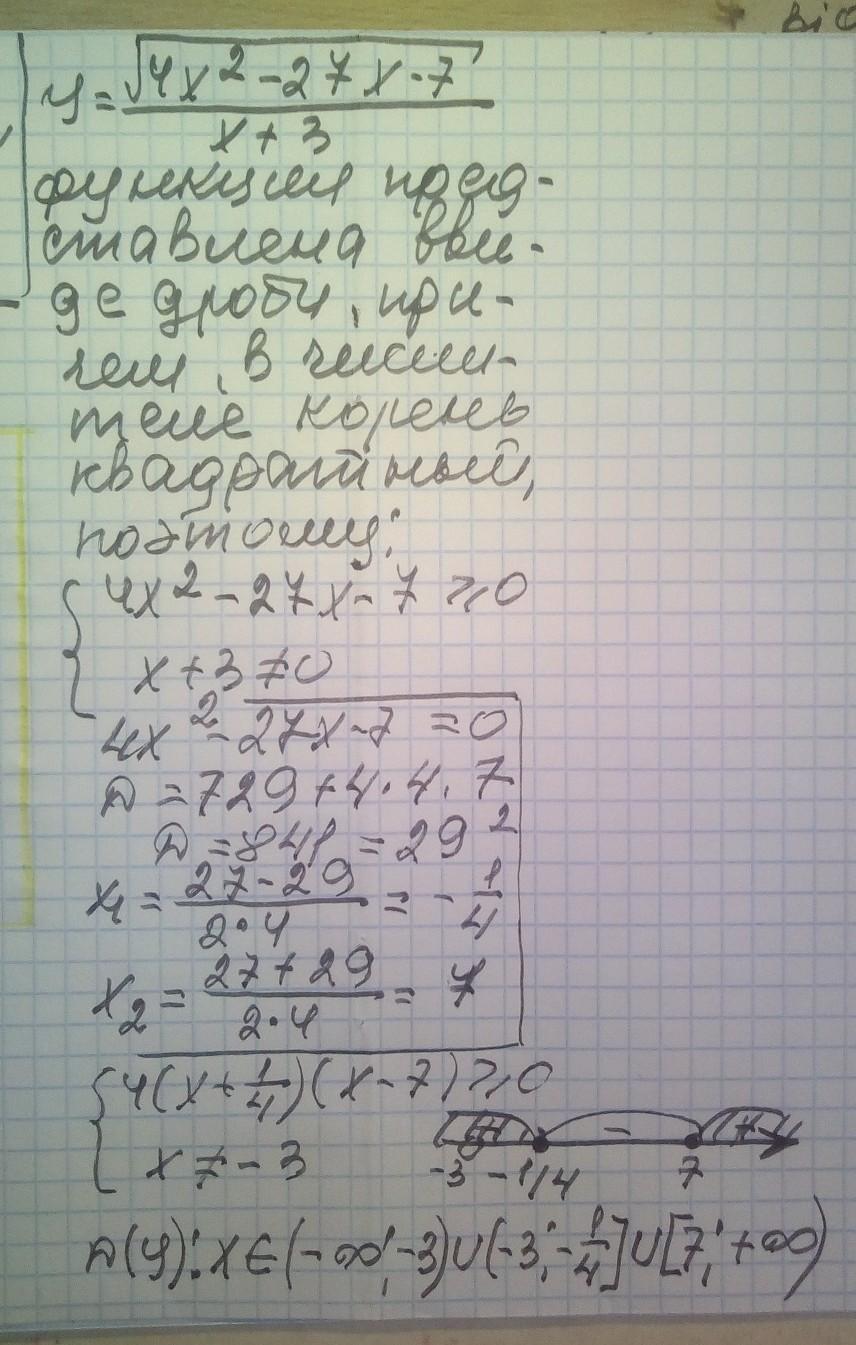 y = √(4x² - 27x - 7) / (x + 3)
функция пред-
ставлена вви-
де дроби, при-
чем, в числи-
теле корень
квадратный,
поэтому:
{ 4x² - 27x - 7 ⩾ 0
x + 3 ≠ 0
4x² - 27x - 7 = 0
D = 729 + 4 · 4 · 7
D = 841 = 29²
x₁ = (27 - 29) / (2 · 4) = - 1/4
x₂ = (27 + 29) / (2 · 4) = 7
{ 4(x + 1/4)(x - 7) ⩾ 0
x ≠ - 3
+ - +
-3 -1/4 7
D(y): x ∈ (-∞; -3) ∪ (-3; -1/4] ∪ [7; +∞)